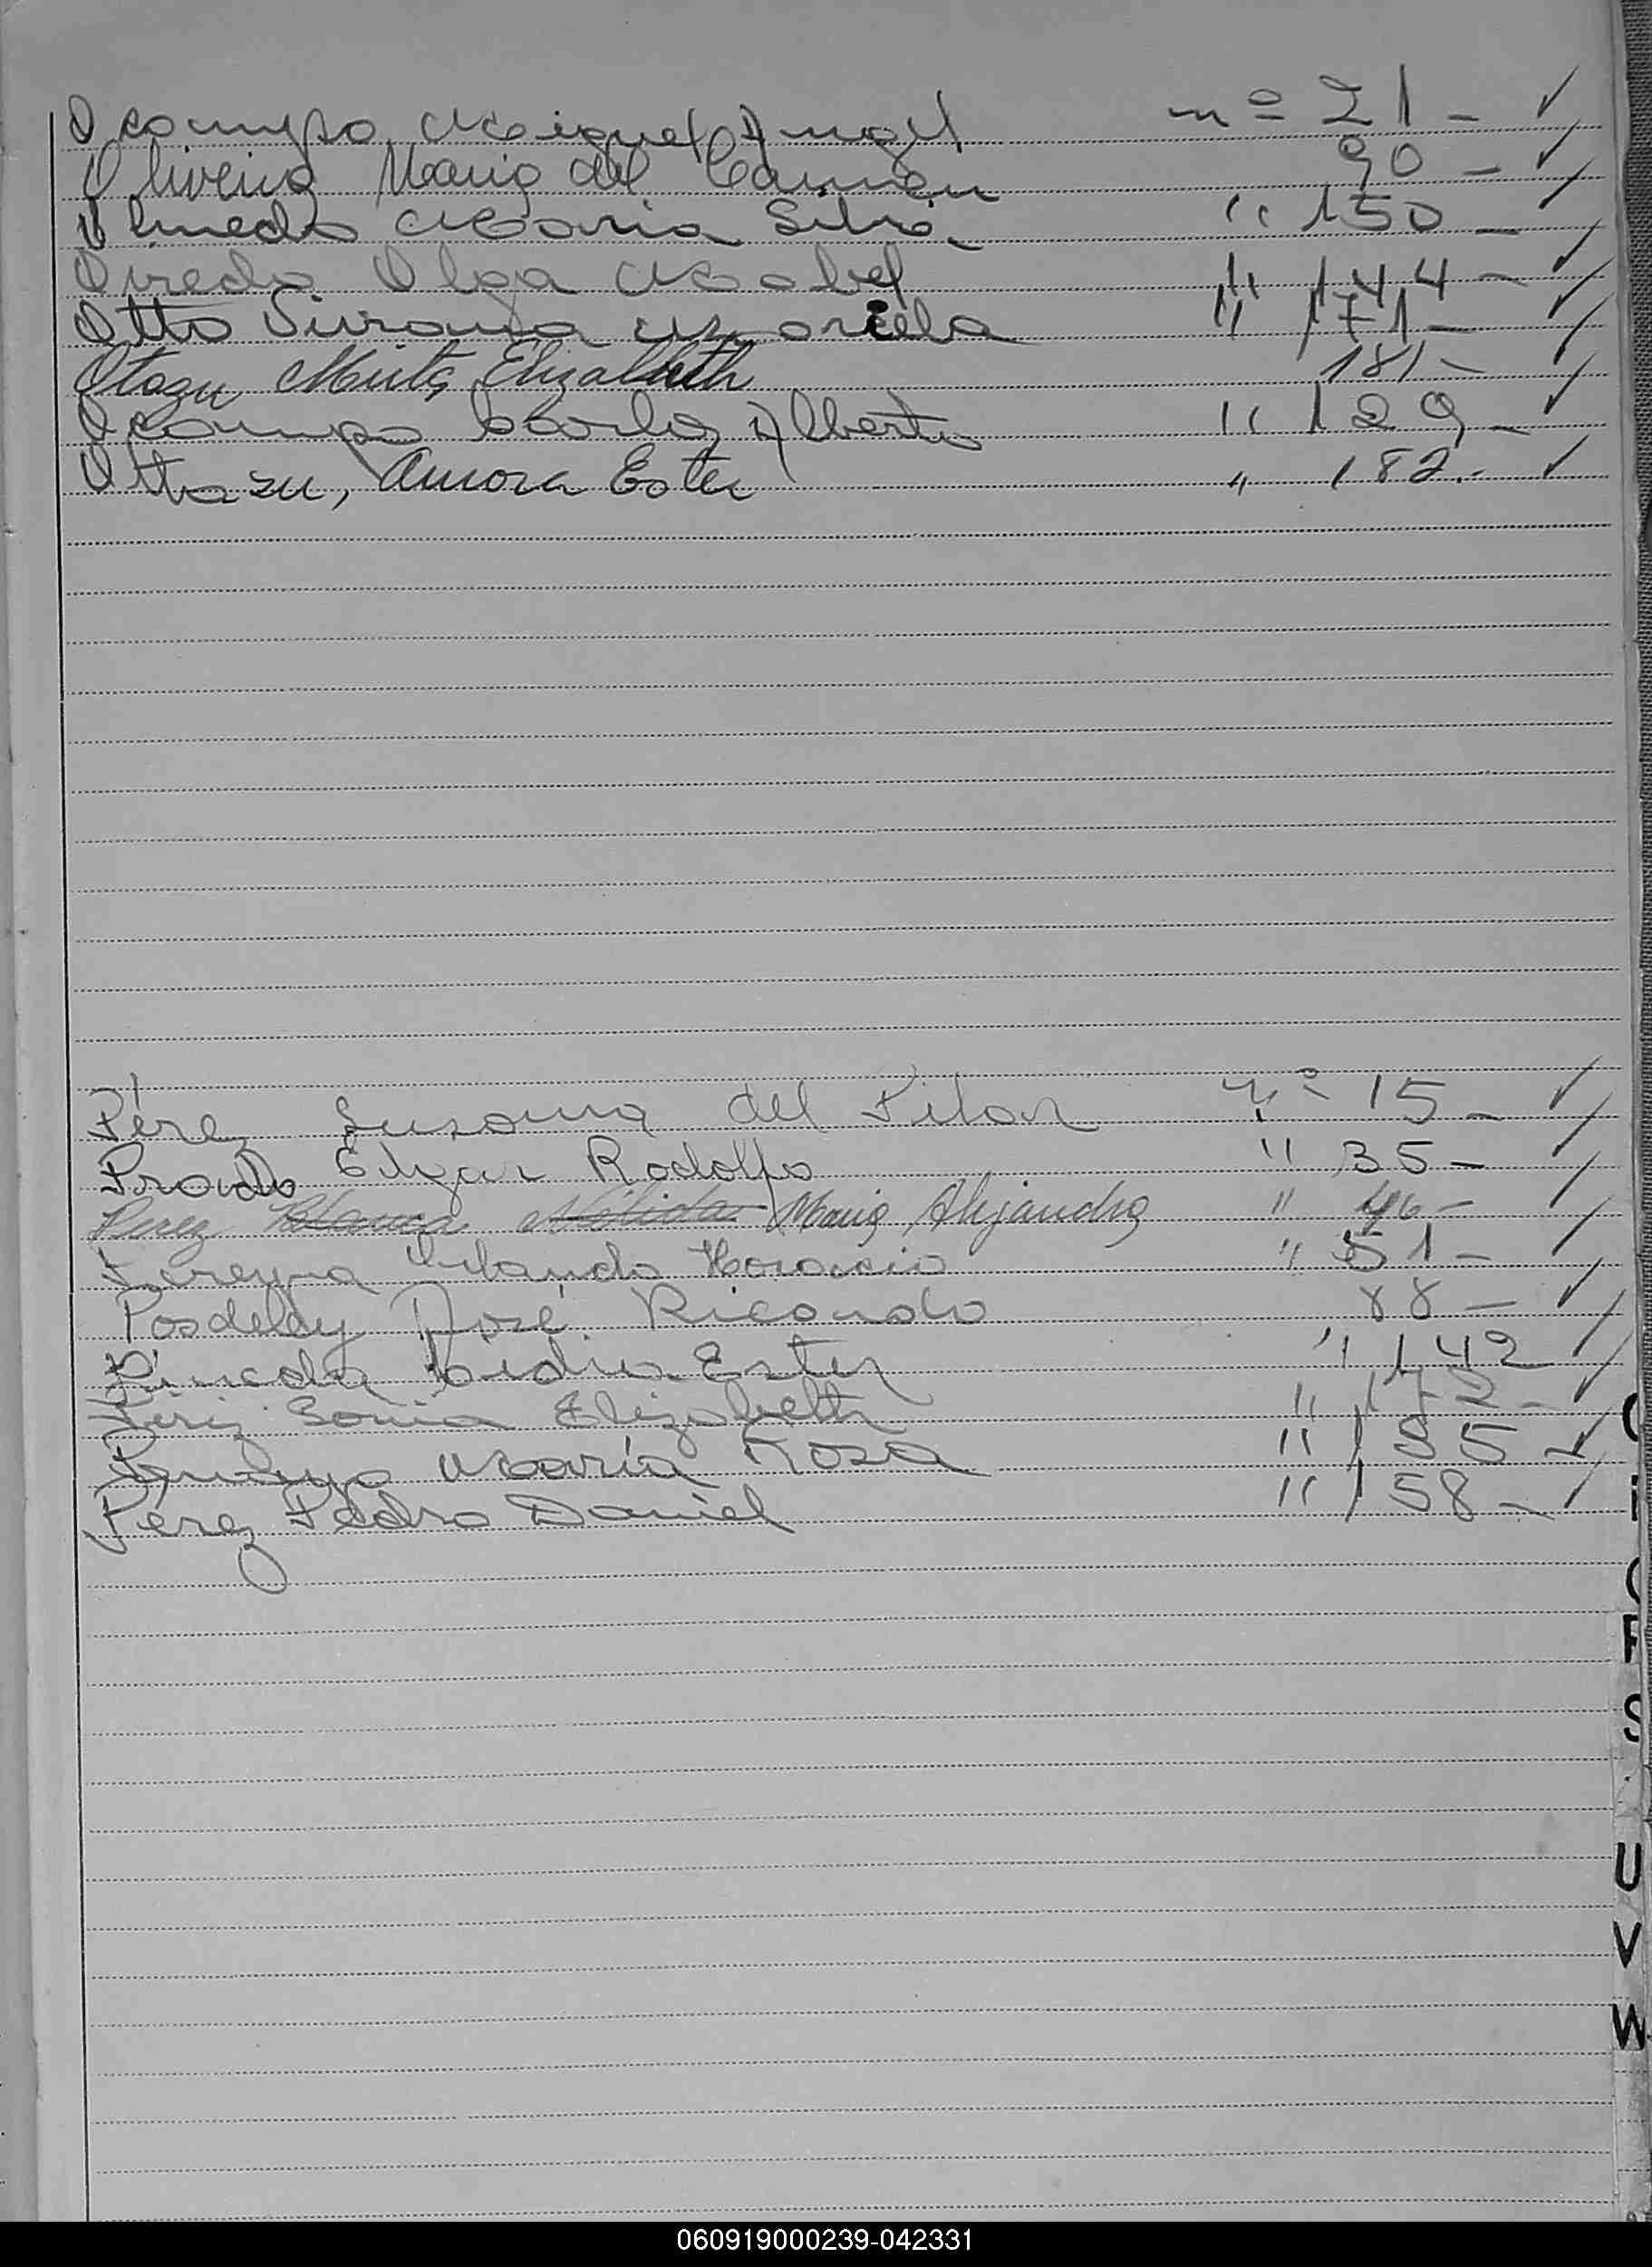 Ocampo Miguel Angel nº 21 -
Oliveira Maria del Carmen 90 -
Olmedo Maria Silvia " 150 -
Oviedo Olga Mabel " 144 -
Otto Silvana Mariela " 171 -
Otazu Mirta Elizabeth 181 -
Ocampo Carlos Alberto " 129 -
Ottazu, Aurora Ester " 182.-
Pérez Susana del Pilar nº 15 -
Prado Edgar Rodolfo " 35 -
Perez Blanca Nélida Maria Alejandra " 46 -
Pereyra Orlando Horacio " 51 -
Posdeley José Ricardo 88 -
Lidia Ester " 142
Periz Sonia Elizabeth " 172 -
María Rosa " 135 -
Pérez Pedro Daniel " 158 -
P
S
U
V
W
060919000239-042331